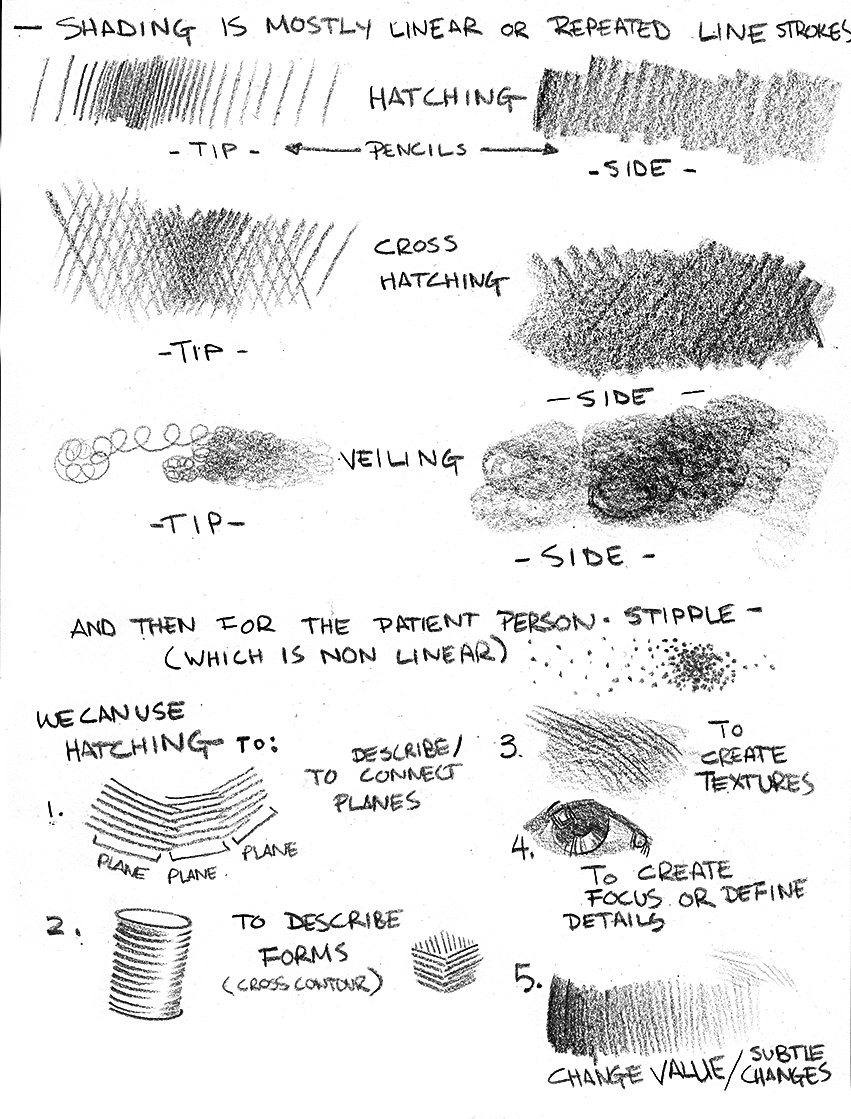 — SHADING IS MOSTLY LINEAR OR REPEATED LINE STROKES
HATCHING
- TIP - PENCILS - SIDE -
CROSS
HATCHING
- TIP -
- SIDE -
VEILING
- TIP -
- SIDE -
AND THEN FOR THE PATIENT PERSON · STIPPLE -
(WHICH IS NON LINEAR)
WE CAN USE
HATCHING TO:
1.
DESCRIBE/
TO CONNECT
PLANES
PLANE PLANE PLANE
2. TO DESCRIBE
FORMS
(CROSS CONTOUR)
3. TO
CREATE
TEXTURES
4.
TO CREATE
FOCUS OR DEFINE
DETAILS
5.
CHANGE VALUE / SUBTLE
CHANGES